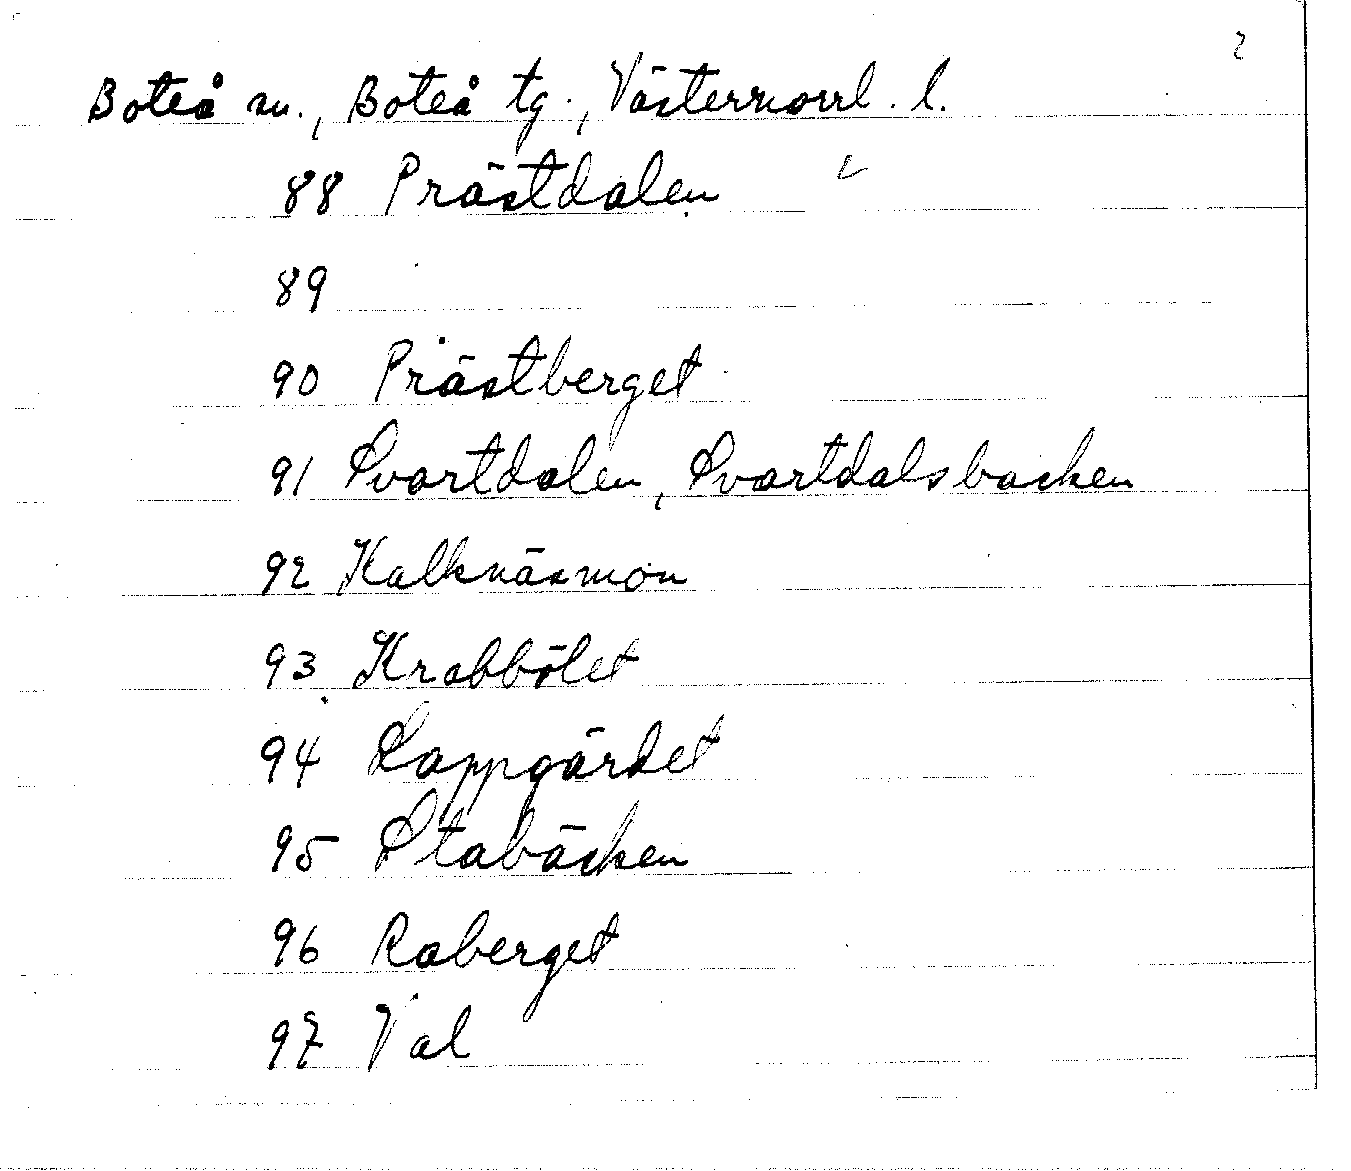 2
Boteå sn., Boteå tg., Västernorrl. l.
88 Prästdalen
89
90 Prästberget
91 Svartdalen, Svartdalsbacken
92 Kalknäsmon
93 Krabbölet
94 Lappgärdet
95 Stabäcken
96 Raberget
97 Val